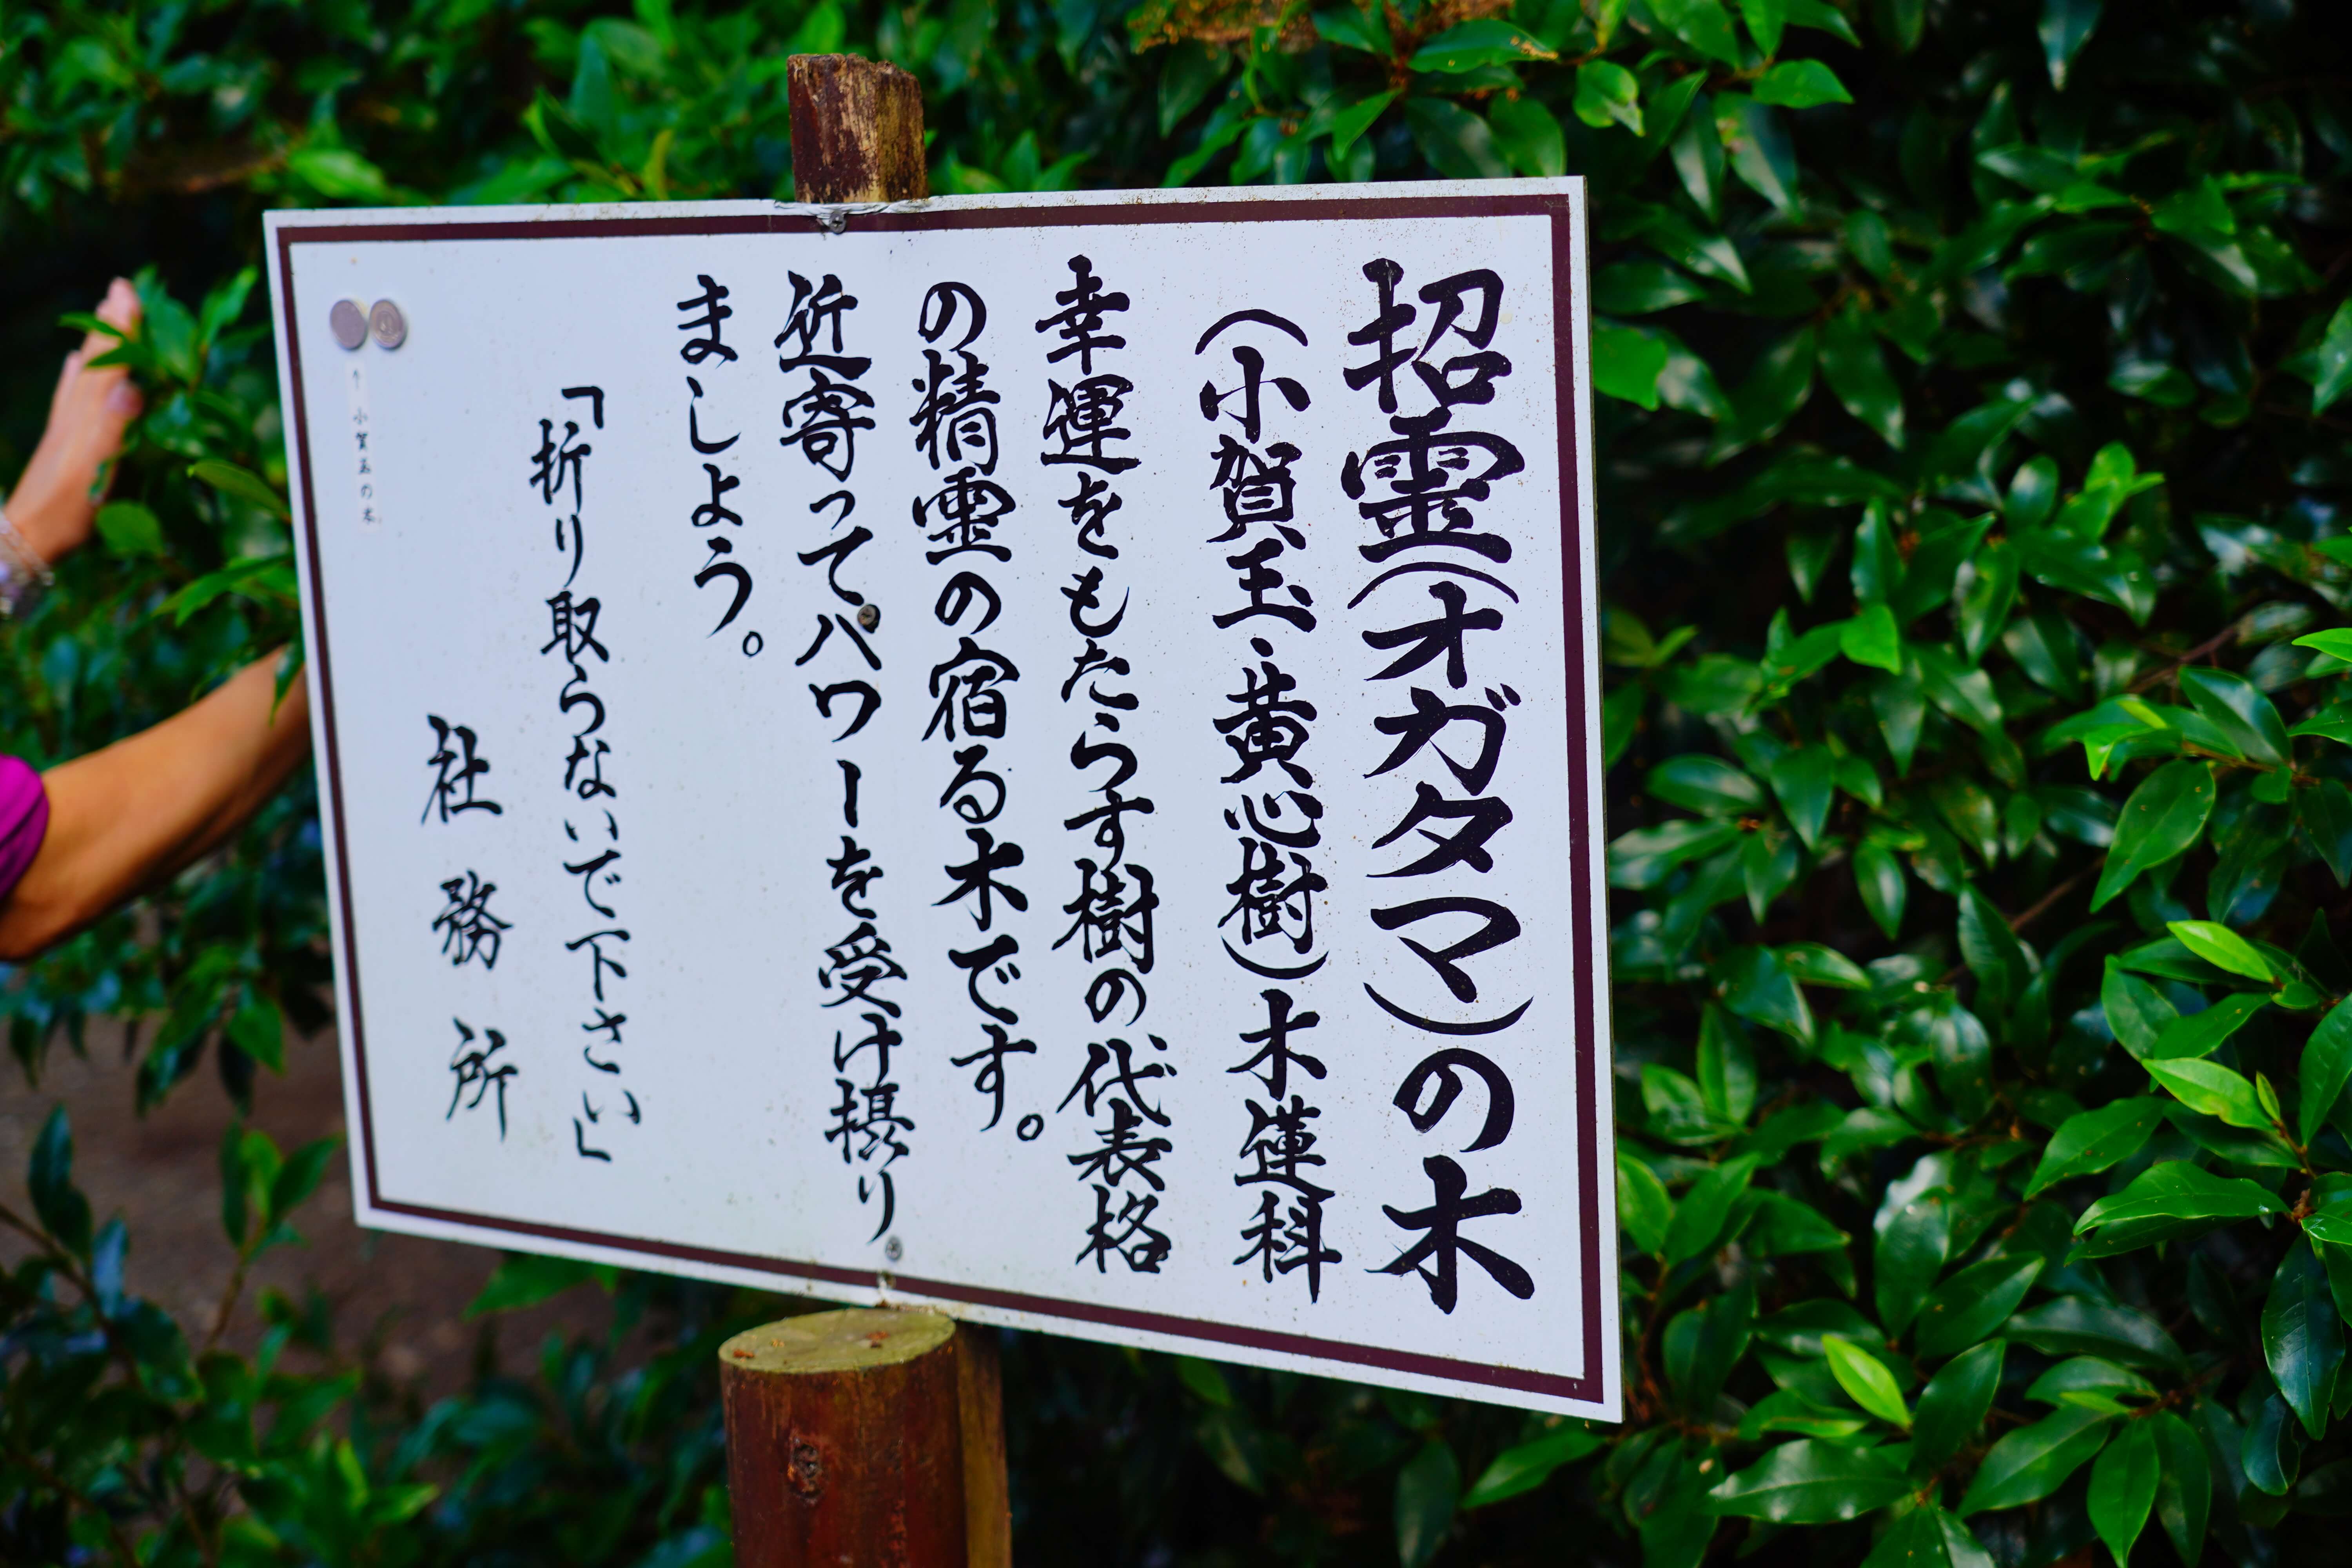 招霊(オガタマ)の木
(小賀玉・黄心樹)木蓮科
幸運をもたらす樹の代表格
の精霊の宿る木です。
近寄ってパワーを受け摂り
ましょう。
「折り取らないで下さい」
社務所
↑小賀玉の木